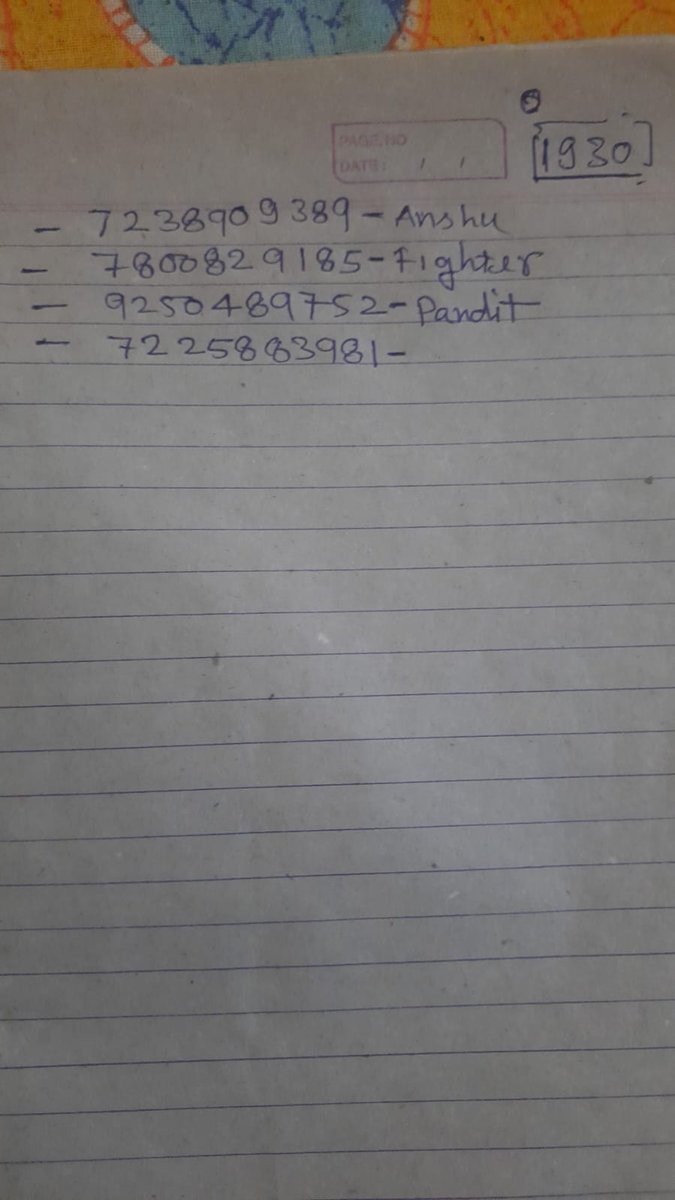 [1930]
PAGE NO
DATE: / /
- 7238909389 - Anshu
- 7800829185 - Fighter
- 9250489752 - Pandit
- 7225883981 -